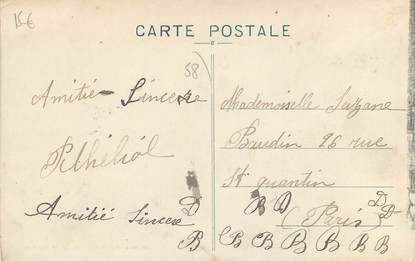 15€
CARTE POSTALE
58
Amitié Sincere
Amitié Sincere D
B
Mademoiselle Suzane
Baudin 26 rue
St quantin
B D D
(Paris) D
B B B B B B